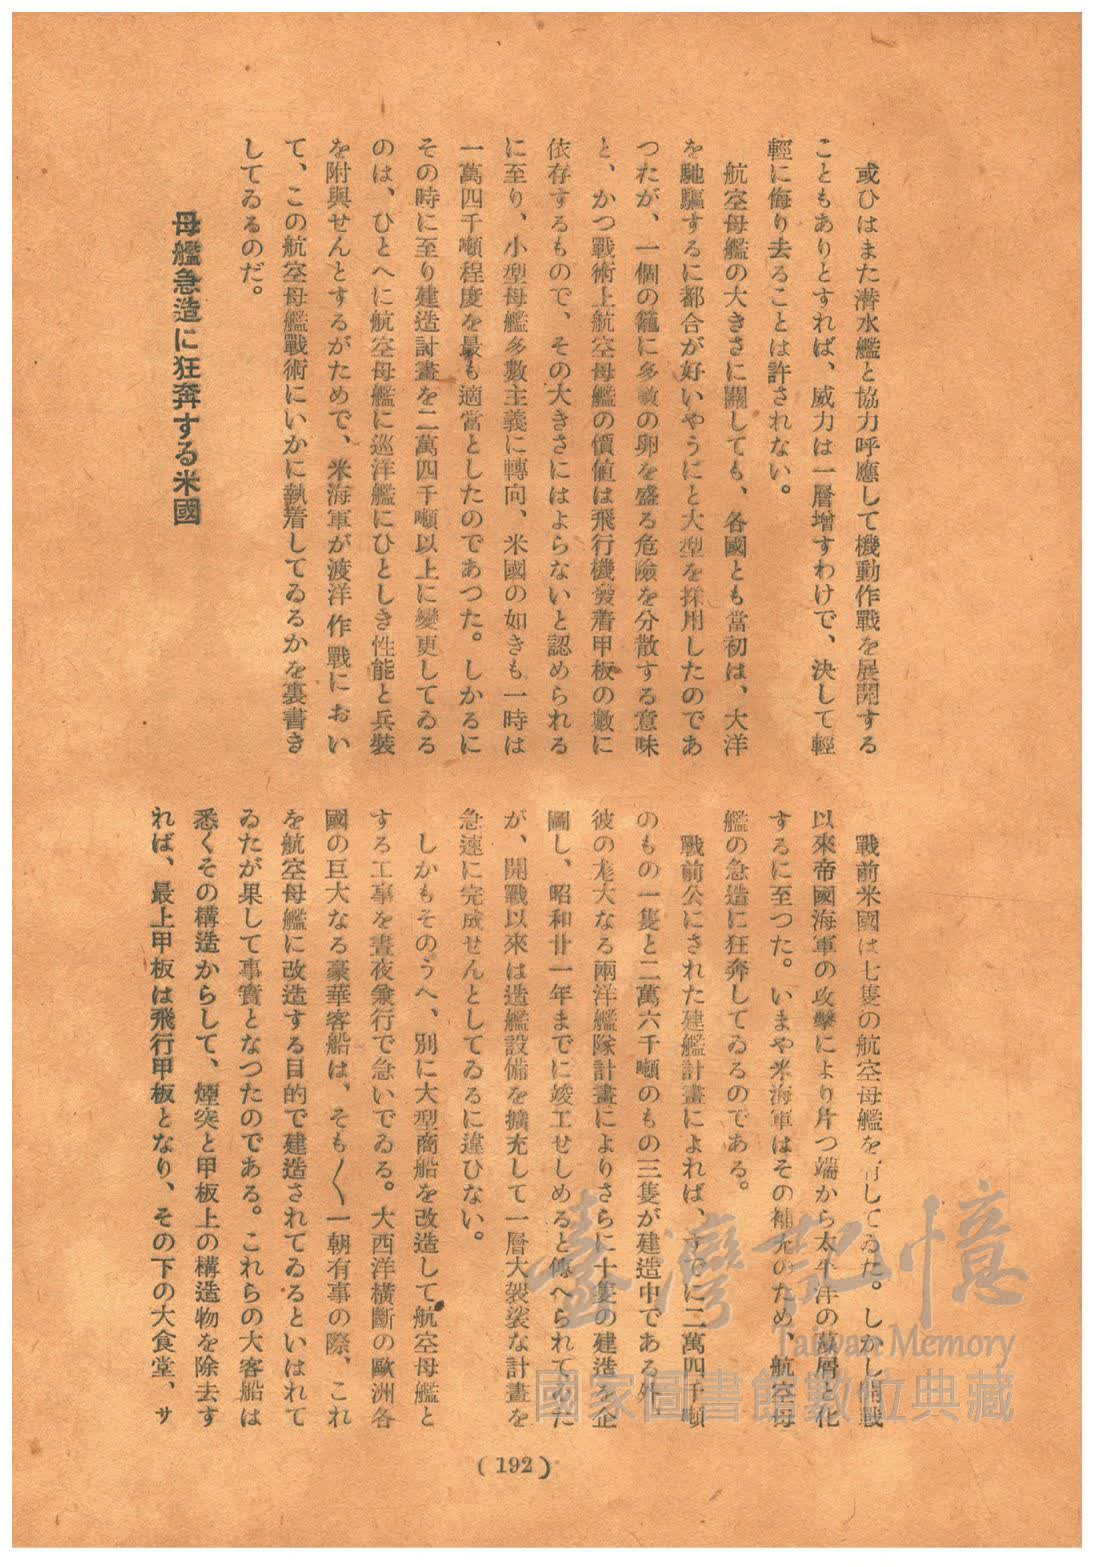 或ひはまた潜水艦と協力呼應して機動作戰を展開する
こともありとすれば、威力は一層增すわけで、決して輕
輕に侮り去ることは許されない。
航空母艦の大きさに關しても、各國とも當初は、大洋
を馳驅するに都合が好いやうにと大型を採用したのであ
つたが、一個の籠に多數の卵を盛る危險を分散する意味
と、かつ戰術上航空母艦の價値は飛行機發着甲板の數に
依存するもので、その大きさにはよらないと認められる
に至り、小型母艦多數主義に轉向、米國の如きも一時は
一萬四千噸程度を最も適當としたのであつた。しかるに
その時に至り建造計畫を二萬四千噸以上に變更してゐる
のは、ひとへに航空母艦に巡洋艦にひとしき性能と兵裝
を附與せんとするがためで、米海軍が渡洋作戰におい
て、この航空母艦戰術にいかに執着してゐるかを裏書き
してゐるのだ。
母艦急造に狂奔する米國
戰前米國は七隻の航空母艦を有してゐた。しかし開戰
以來帝國海軍の攻擊により片つ端から太平洋の藻屑と化
するに至つた。いまや米海軍はその補充のため、航空母
艦の急造に狂奔してゐるのである。
戰前公にされた建艦計畫によれば、すでに二萬四千噸
のもの一隻と二萬六千噸のもの三隻が建造中である外
彼の尨大なる兩洋艦隊計畫によりさらに十隻の建造を企
圖し、昭和廿一年までに竣工せしめると傳へられてゐた
が、開戰以來は造艦設備を擴充して一層大袈裟な計畫を
急速に完成せんとしてゐるに違ひない。
しかもそのうへ、別に大型商船を改造して航空母艦と
する工事を晝夜兼行で急いでゐる。大西洋橫斷の歐洲各
國の巨大なる豪華客船は、そも〱一朝有事の際、これ
を航空母艦に改造する目的で建造されてゐるといはれて
ゐたが果して事實となつたのである。これらの大客船は
悉くその構造からして、煙突と甲板上の構造物を除去す
れば、最上甲板は飛行甲板となり、その下の大食堂、サ
(192)
臺灣記憶
Taiwan Memory
國家圖書館數位典藏